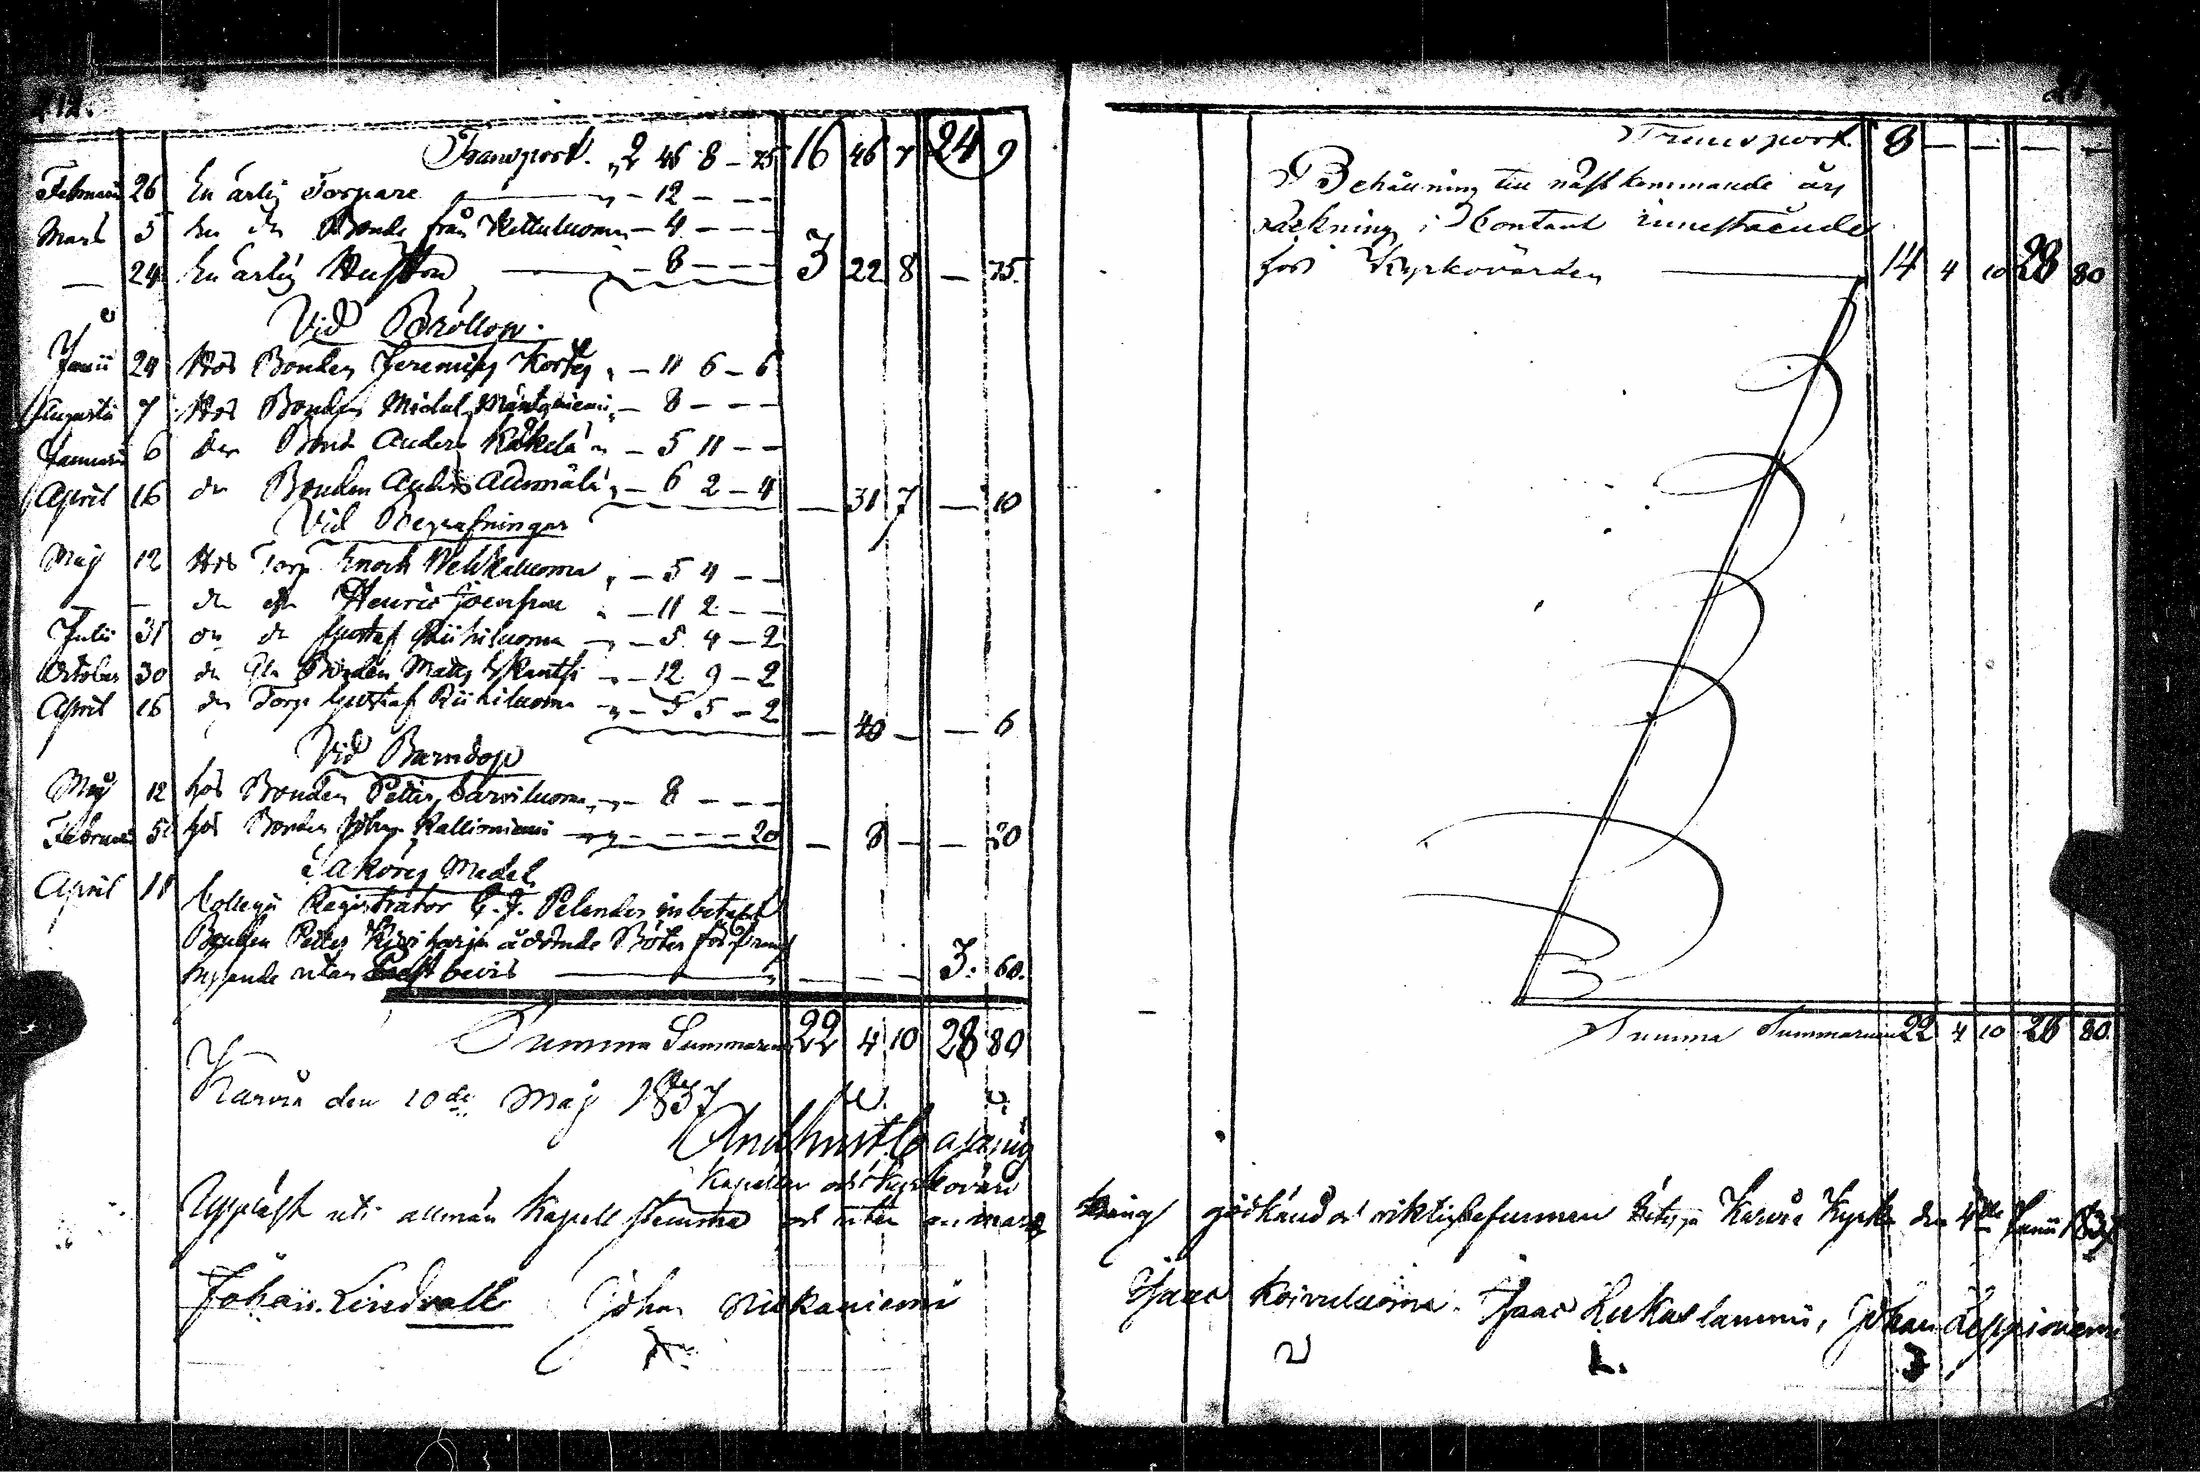 212.
Transport. „ 2 46 8 – 75 16 46 7 24 9
Februarii 26 En ärlig Torpare „ – 12 – – –
Mars 5 En do Bonde från Kettuluoma – 4 – – –
— 24 En ärlig Hustru „ – 8 – – – 3 22 8 – 75.
Vid Bröllop.
Junii 24 Hos Bonden Jeremias Kortes „ – 11 6 – 6
Augusti 7 Hos Bonden Michel Mäntyniemi „ – 8 – – –
Januarii 6 do Bond Anders Käkelä „ – 5 11 – –
April 16 do Bonden Anders Alamäki „ – 6 2 – 4 – 31 7 – 10
Vid Begrafningar
Maj 12 Hos Torp Enoch Wehkaluoma „ – 5 4 – –
— — do do Henric Joensuu „ – 11 2 – –
Julii 31 do do Gustaf Riihiluoma „ – 5. 4 – 2
October 30 do Bonden Matts – 12. 9 – 2
April 16 do Torp Gustaf Riihiluoma „ – 5 5 – 2 – 40 – – 6
Vid Barndop
Maj 12 hos Bonden Petter Sarviluoma „ – 8 – – –
Februarii 5 hos Bonden Johan Kallioniemi „ – – – – 20 – 8 – – 20
Saköres Medel
April 11 Collegii Registrator C. J. Pelander inbetalt
Bonden Petter Kiviharju ådömde Böter för
utan Prest bevis – – – 3. 60.
Summa Summarum 22 4 10 28 80
Karvia den 10de Maj 1837
And: hust
Kapellan och Kyrkovärd
Uppläst uti allmän Kapell stämma och utan anmärk
Johan Lindvall Johan Niskaniemi
Transport. 8 – – – –
Behållning till nästkommande års
räkning i Contant innestående
hos Kyrkovärden 14 4 10 28 80
Summa Summarum 22 4 10 28 80.
ning godkänd och riktig befunnen betygar Karvia Kyrka den 4de Junii 1837
Isaac Koivuluoma. Isaac Luukaslammi, Johan Leppiniemi